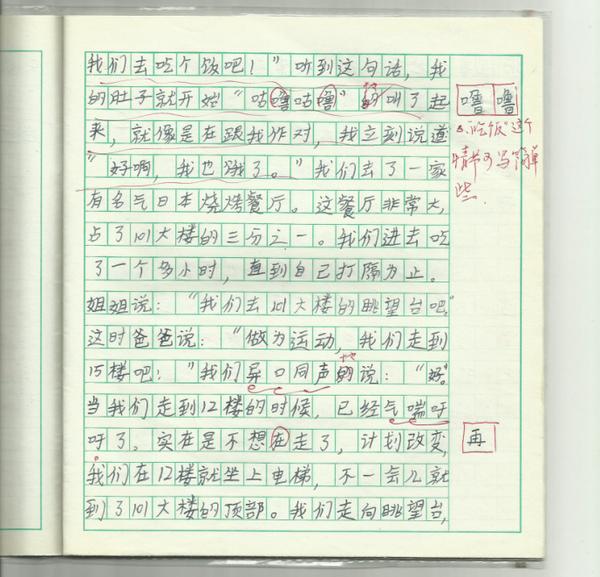 我们去吃个饭吧！”听到这句话，我
的肚子就开始“咕噜咕噜”的叫了起
来，就像是在跟我作对，我立刻说道
“好啊，我也饿了。”我们去了一家
有名气日本烧烤餐厅。这餐厅非常大，
占了101大楼的三分之一。我们进去吃
了一个多小时，直到自己打隔为止。
姐姐说：“我们去101大楼的眺望台吧。”
这时爸爸说：“做为运动，我们走到
15楼吧！”我们异口同声的说：“好。”
当我们走到12楼的时候，已经气喘吁
吁了。实在是不想在走了，计划改变，
我们在12楼就坐上电梯，不一会儿就
到了101大楼的顶部。我们走向眺望台，
噜噜
“吃饭”这个
情节可写简单
些.
地
地
再